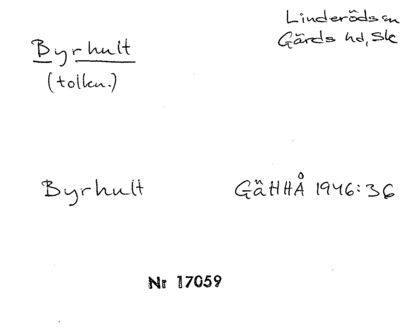 Linderöds sn
Gärds hd, Sk
Byrhult
(tolkn.)
Byrhult GäHHÅ 1946:36
Nr 17059